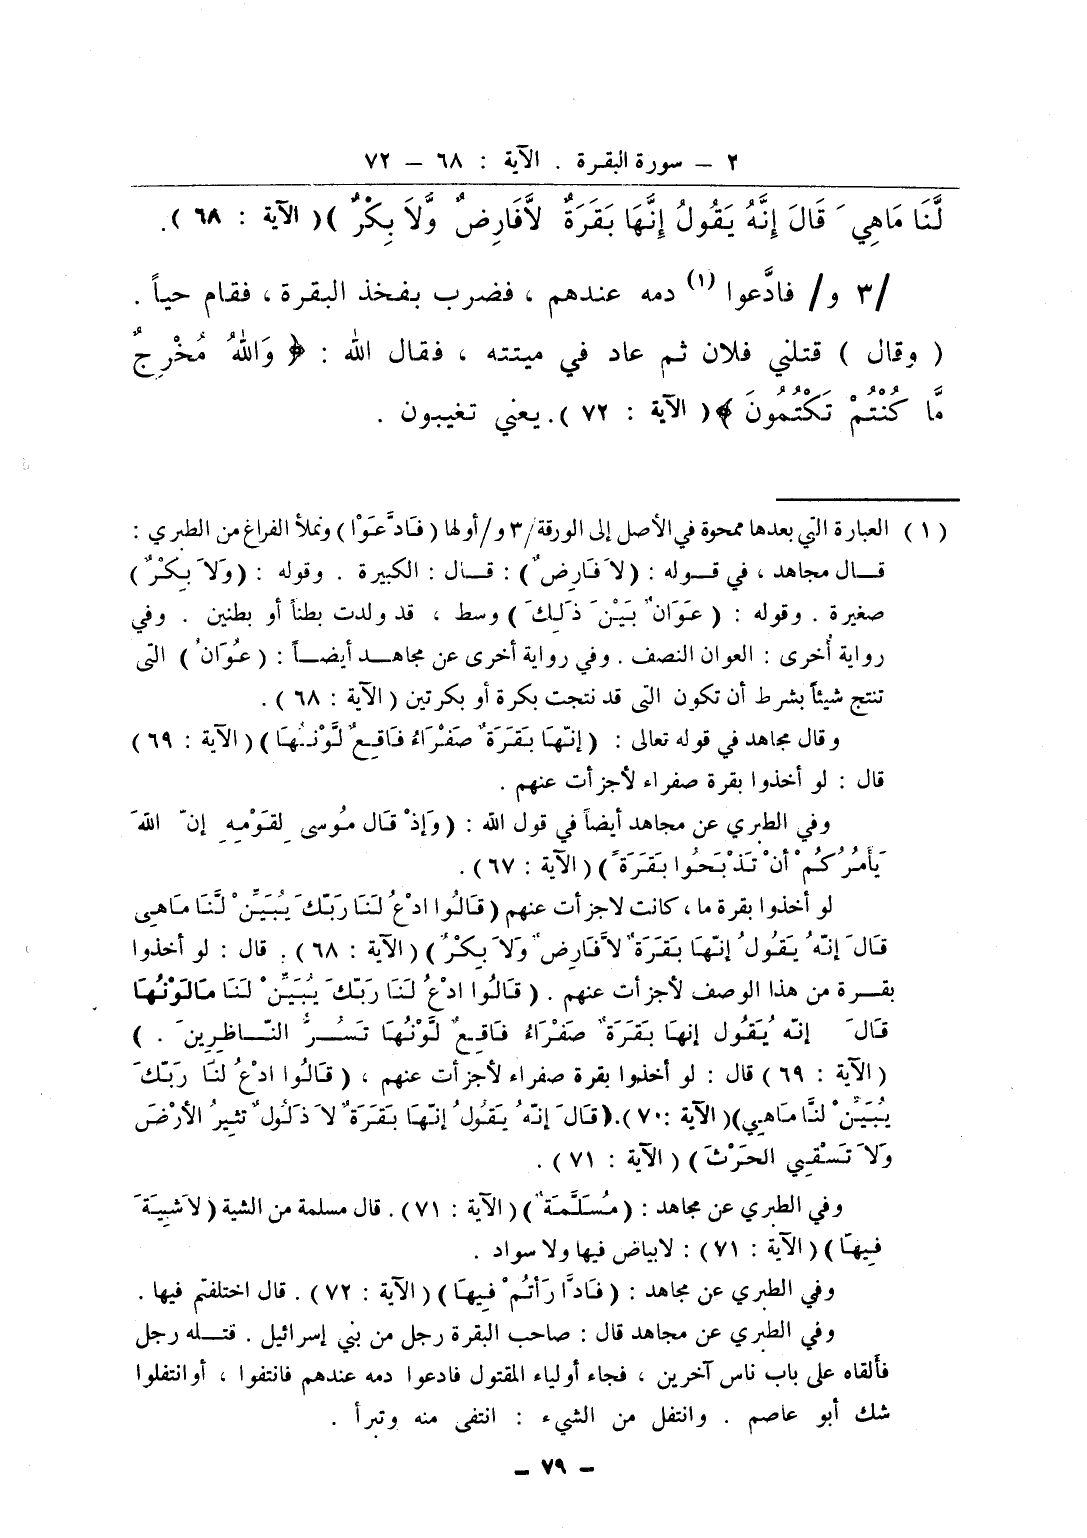 ٢ – سورة البقرة . الآية : ٦٨ – ٧٢
لَّنَا مَاهِيَ قَالَ إِنَّهُ يَقُولُ إِنَّهَا بَقَرَةٌ لاَّفَارِضٌ وَّلاَ بِكْرٌ )( الآية : ٦٨ ).
/٣ و/ فادَّعوا (١) دمه عندهم ، فضرب بفخذ البقرة ، فقام حياً .
( وقال ) قتلني فلان ثم عاد في ميتته ، فقال الله : ﴿ وَاللهُ مُخْرِجٌ
مَّا كُنْتُمْ تَكْتُمُونَ ﴾( الآية : ٧٢ ). يعني تغيبون .
( ١ ) العبارة التي بعدها ممحوة في الأصل إلى الورقة/٣ و/أولها ( فَادَّعَوْا ) ونملأ الفراغ من الطبري :
قـــال مجاهد ، في قـــوله : (لاَ فَارِضٌ) : قـــال : الكبيرة . وقوله : (وَلاَ بِكْرٌ)
صغيرة . وقوله : ( عَوَانٌ بَيْنَ ذَلِكَ ) وسط ، قد ولدت بطناً أو بطنين . وفي
رواية أُخرى : العوان النصف . وفي رواية أخرى عن مجاهـــد أيضـــاً : ( عُوَانُ ) التى
تنتج شيئاً بشرط أن تكون التى قد نتجت بكرة أو بكرتين ( الآية : ٦٨ ) .
وقال مجاهد في قوله تعالى : (إِنَّهَا بَقَرَةٌ صَفْرَاءُ فَاقِعٌ لَّوْنُهَا)(الآية : ٦٩)
قال : لو أخذوا بقرة صفراء لأجزأت عنهم .
وفي الطبري عن مجاهد أيضاً في قول الله : (وَإِذْ قَال مُوسى لِقَوْمِهِ إِنّ اللهَ
يَأمُرُكُمْ أنْ تَذْبَحُوا بَقَرَةً)( الآية : ٦٧) .
لو أخذوا بقرة ما ، كانت لاجزأت عنهم ( قَالُوا ادْعُ لَنَا رَبّكَ يُبَيِّنْ لَّنَا مَاهِي
قَالَ إِنّهُ يَقُولُ إِنّهَا بَقَرَةٌ لاَّفَارِضٌ وَلاَ بِكْرٌ)(الآية : ٦٨) . قال : لو أخذوا
بقـــرة من هذا الوصف لأجزأت عنهم . ( قَالُوا ادْعُ لَنَا رَبّكَ يُبَيِّنْ لَنَا مَالَوْنُهَا
قَالَ إِنّهُ يَقُول إِنهَا بَقَرَةٌ صَفْرَاءُ فَاقِعٌ لَّوْنُهَا تَسُـــرُّ النّـــاظِرِينَ . )
(الآية : ٦٩) قال : لو أخذوا بقرة صفراء لأجزأت عنهم ، (قَالُوا ادْعُ لنَا رَبّكَ
يُبَيِّنْ لنَّا مَاهِي)(الآية :٧٠).(قَالَ إِنّهُ يَقُولُ إِنّهَا بَقَرَةٌ لاَ ذَلُولٌ تثيرُ الأرْضَ
وَلاَ تَسْقِي الحَرْثَ ) ( الآية : ٧١ ) .
وفي الطبري عن مجاهد : ( مُسَلَّمَةٌ )( الآية : ٧١) . قال مسلمة من الشية ( لاَشِيَةَ
فِيهَا )( الآية : ٧١) : لابياض فيها ولا سواد .
وفي الطبري عن مجاهد : ( فَادَّارَأتُمْ فِيهَا )( الآية : ٧٢) . قال اختلفتم فيها .
وفي الطبري عن مجاهد قال : صاحب البقرة رجل من بني إسرائيل . قتـــله رجل
فألقاه على باب ناس آخرين ، فجاء أولياء المقتول فادعوا دمه عندهم فانتفوا ، أوانتفلوا
شك أبو عاصم . وانتفل من الشيء : انتفى منه وتبرأ .
– ٧٩ –